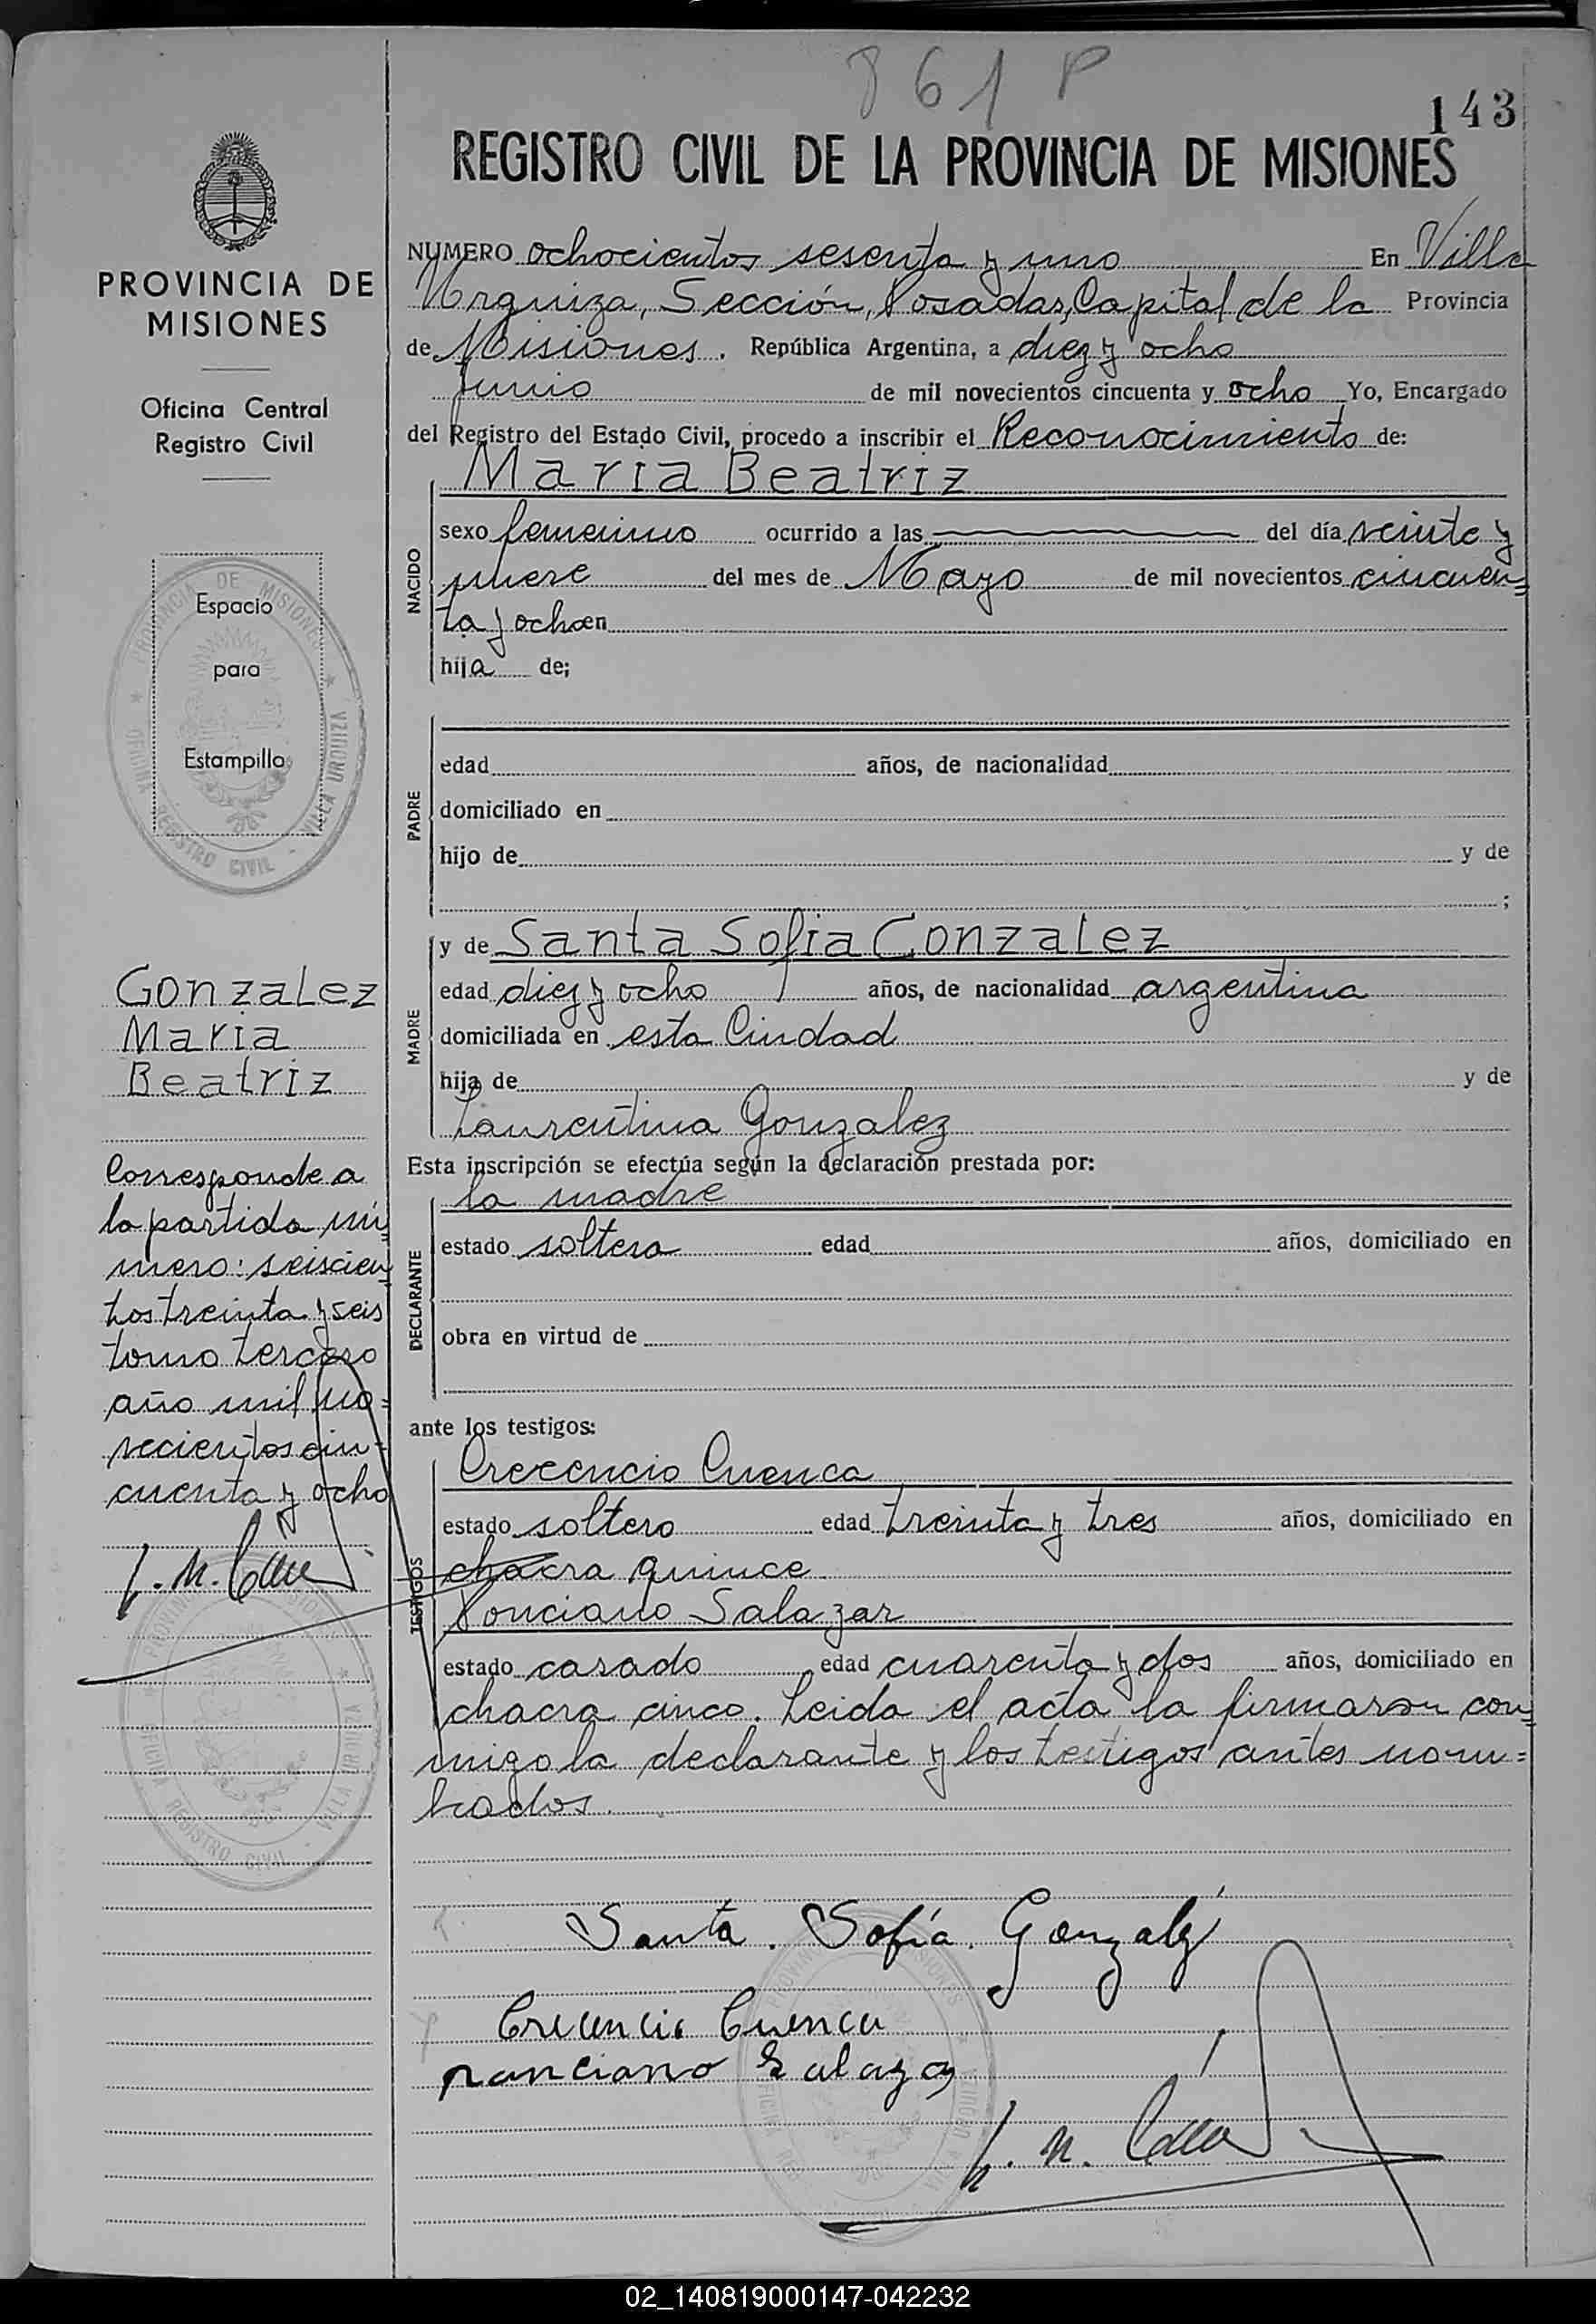 861 P
143
REGISTRO CIVIL DE LA PROVINCIA DE MISIONES
PROVINCIA DE
MISIONES
Oficina Central
Registro Civil
Espacio
para
Estampilla
Gonzalez
Maria
Beatriz
Corresponde a
la partida nú
mero: seiscien
tos treinta y seis
tomo tercero
año mil no=
vecientos cin=
cuenta y ocho
NUMERO ochocientos sesenta y uno En Villa
Urquiza, Sección, Posadas, Capital de la Provincia
de Misiones. República Argentina, a diez y ocho
Junio de mil novecientos cincuenta y ocho Yo, Encargado
del Registro del Estado Civil, procedo a inscribir el Reconocimiento de:
Maria Beatriz
NACIDO
sexo femenino ocurrido a las del día veinte y
nueve del mes de Mayo de mil novecientos cincuen=
ta y ocho en
hija de;
PADRE
edad años, de nacionalidad
domiciliado en
hijo de y de
;
MADRE
y de Santa Sofia Gonzalez
edad diez y ocho años, de nacionalidad argentina
domiciliada en esta Ciudad
hija de y de
Laurentina Gonzalez
Esta inscripción se efectúa según la declaración prestada por:
la madre
DECLARANTE
estado soltera edad años, domiciliado en
obra en virtud de
ante los testigos:
TESTIGOS
Crecencio Cuenca
estado soltero edad treinta y tres años, domiciliado en
chacra quince
Ponciano Salazar
estado casado edad cuarenta y dos años, domiciliado en
chacra cinco. Leida el acta la firmaron con=
migo la declarante y los testigos antes nom=
brados.
Santa. Sofía. Gonzalez
Crecencio Cuenca
ponciano Salazar
02_140819000147-042232